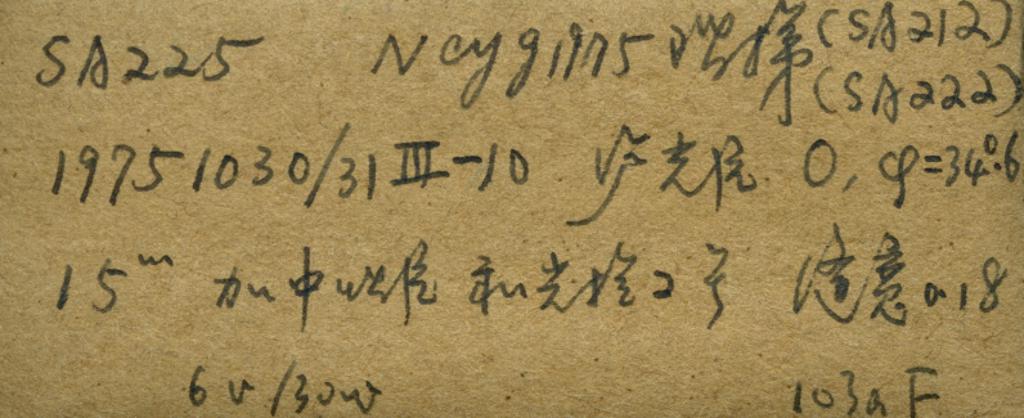 SA225 Ncyg1975 阶梯 (SA212)
(SA222)
1975 1030/31 III-10 光阑 0, φ=34°.6
15ᵐ 加中性 和光栏2号 缝宽 0.18
6v/30w 103aF